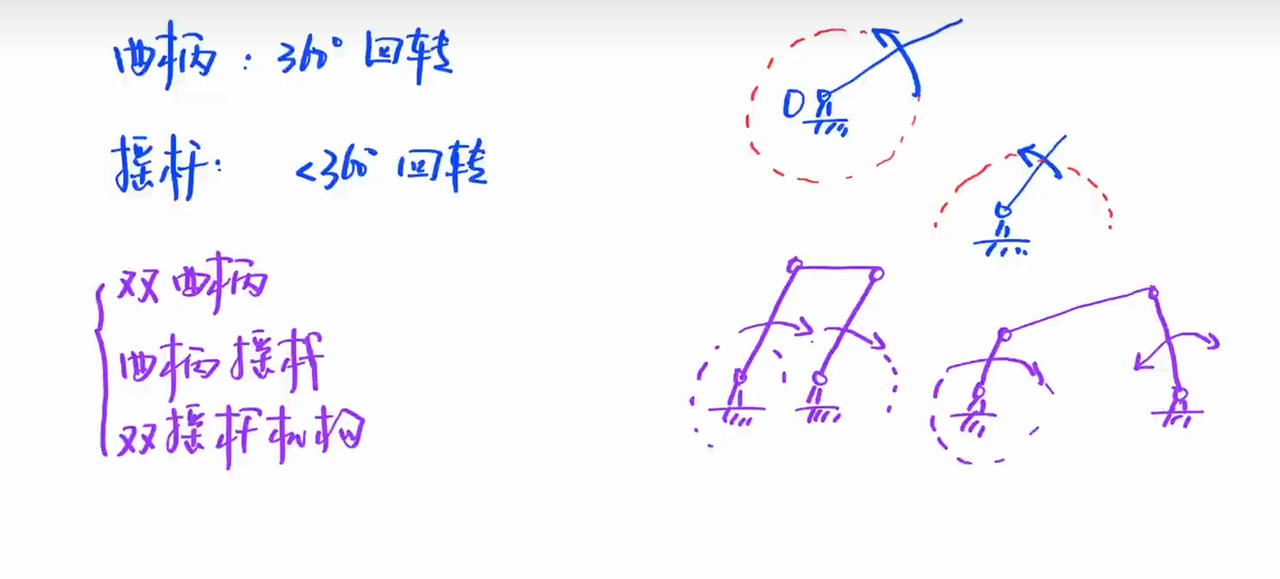 曲柄：360° 回转
O
摇杆： <360° 回转
双曲柄
曲柄摇杆
双摇杆机构